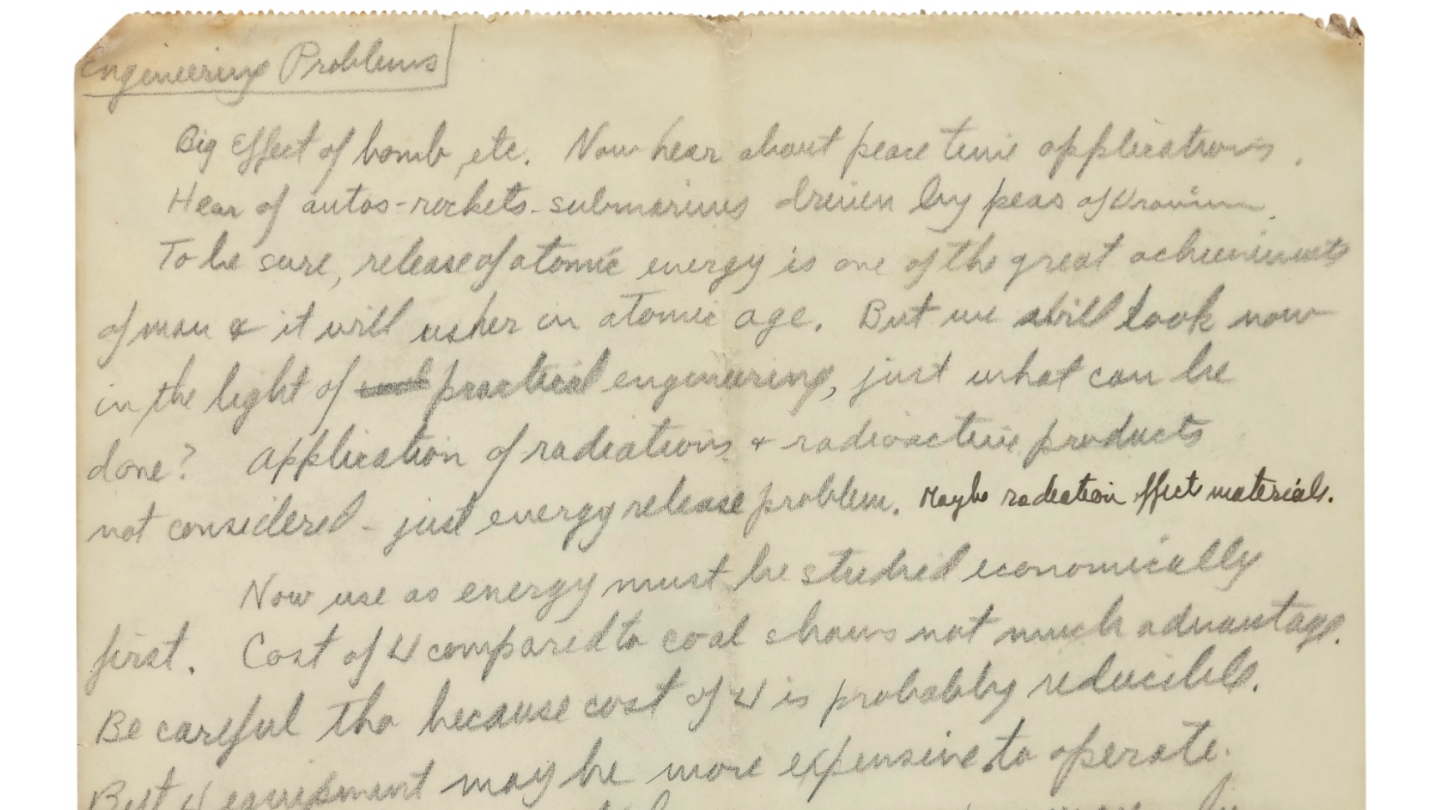 Engineering Problems
Big Effect of bomb, etc. Now hear about peace time applications.
Hear of autos-rockets-submarines driven by peas of Uranium.
To be sure, release of atomic energy is one of the great achievements
of man & it will usher in atomic age. But we still look now
in the light of practical engineering, just what can be
done? Application of radiations & radioactive products
not considered - just energy release problem. Maybe radiation effect materials.
Now use as energy must be studied economically
first. Cost of U compared to coal shows not much advantage.
Be careful tho because cost of U is probably reducible.
But U equipment may be more expensive to operate.